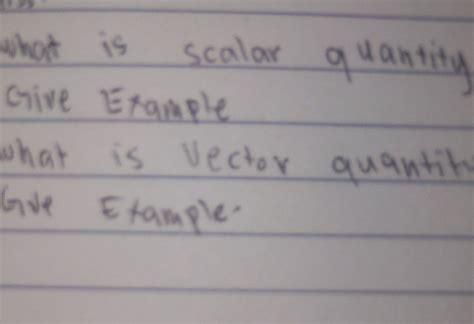 what is scalar quantity
Give Example
what is Vector quantity
Give Example.